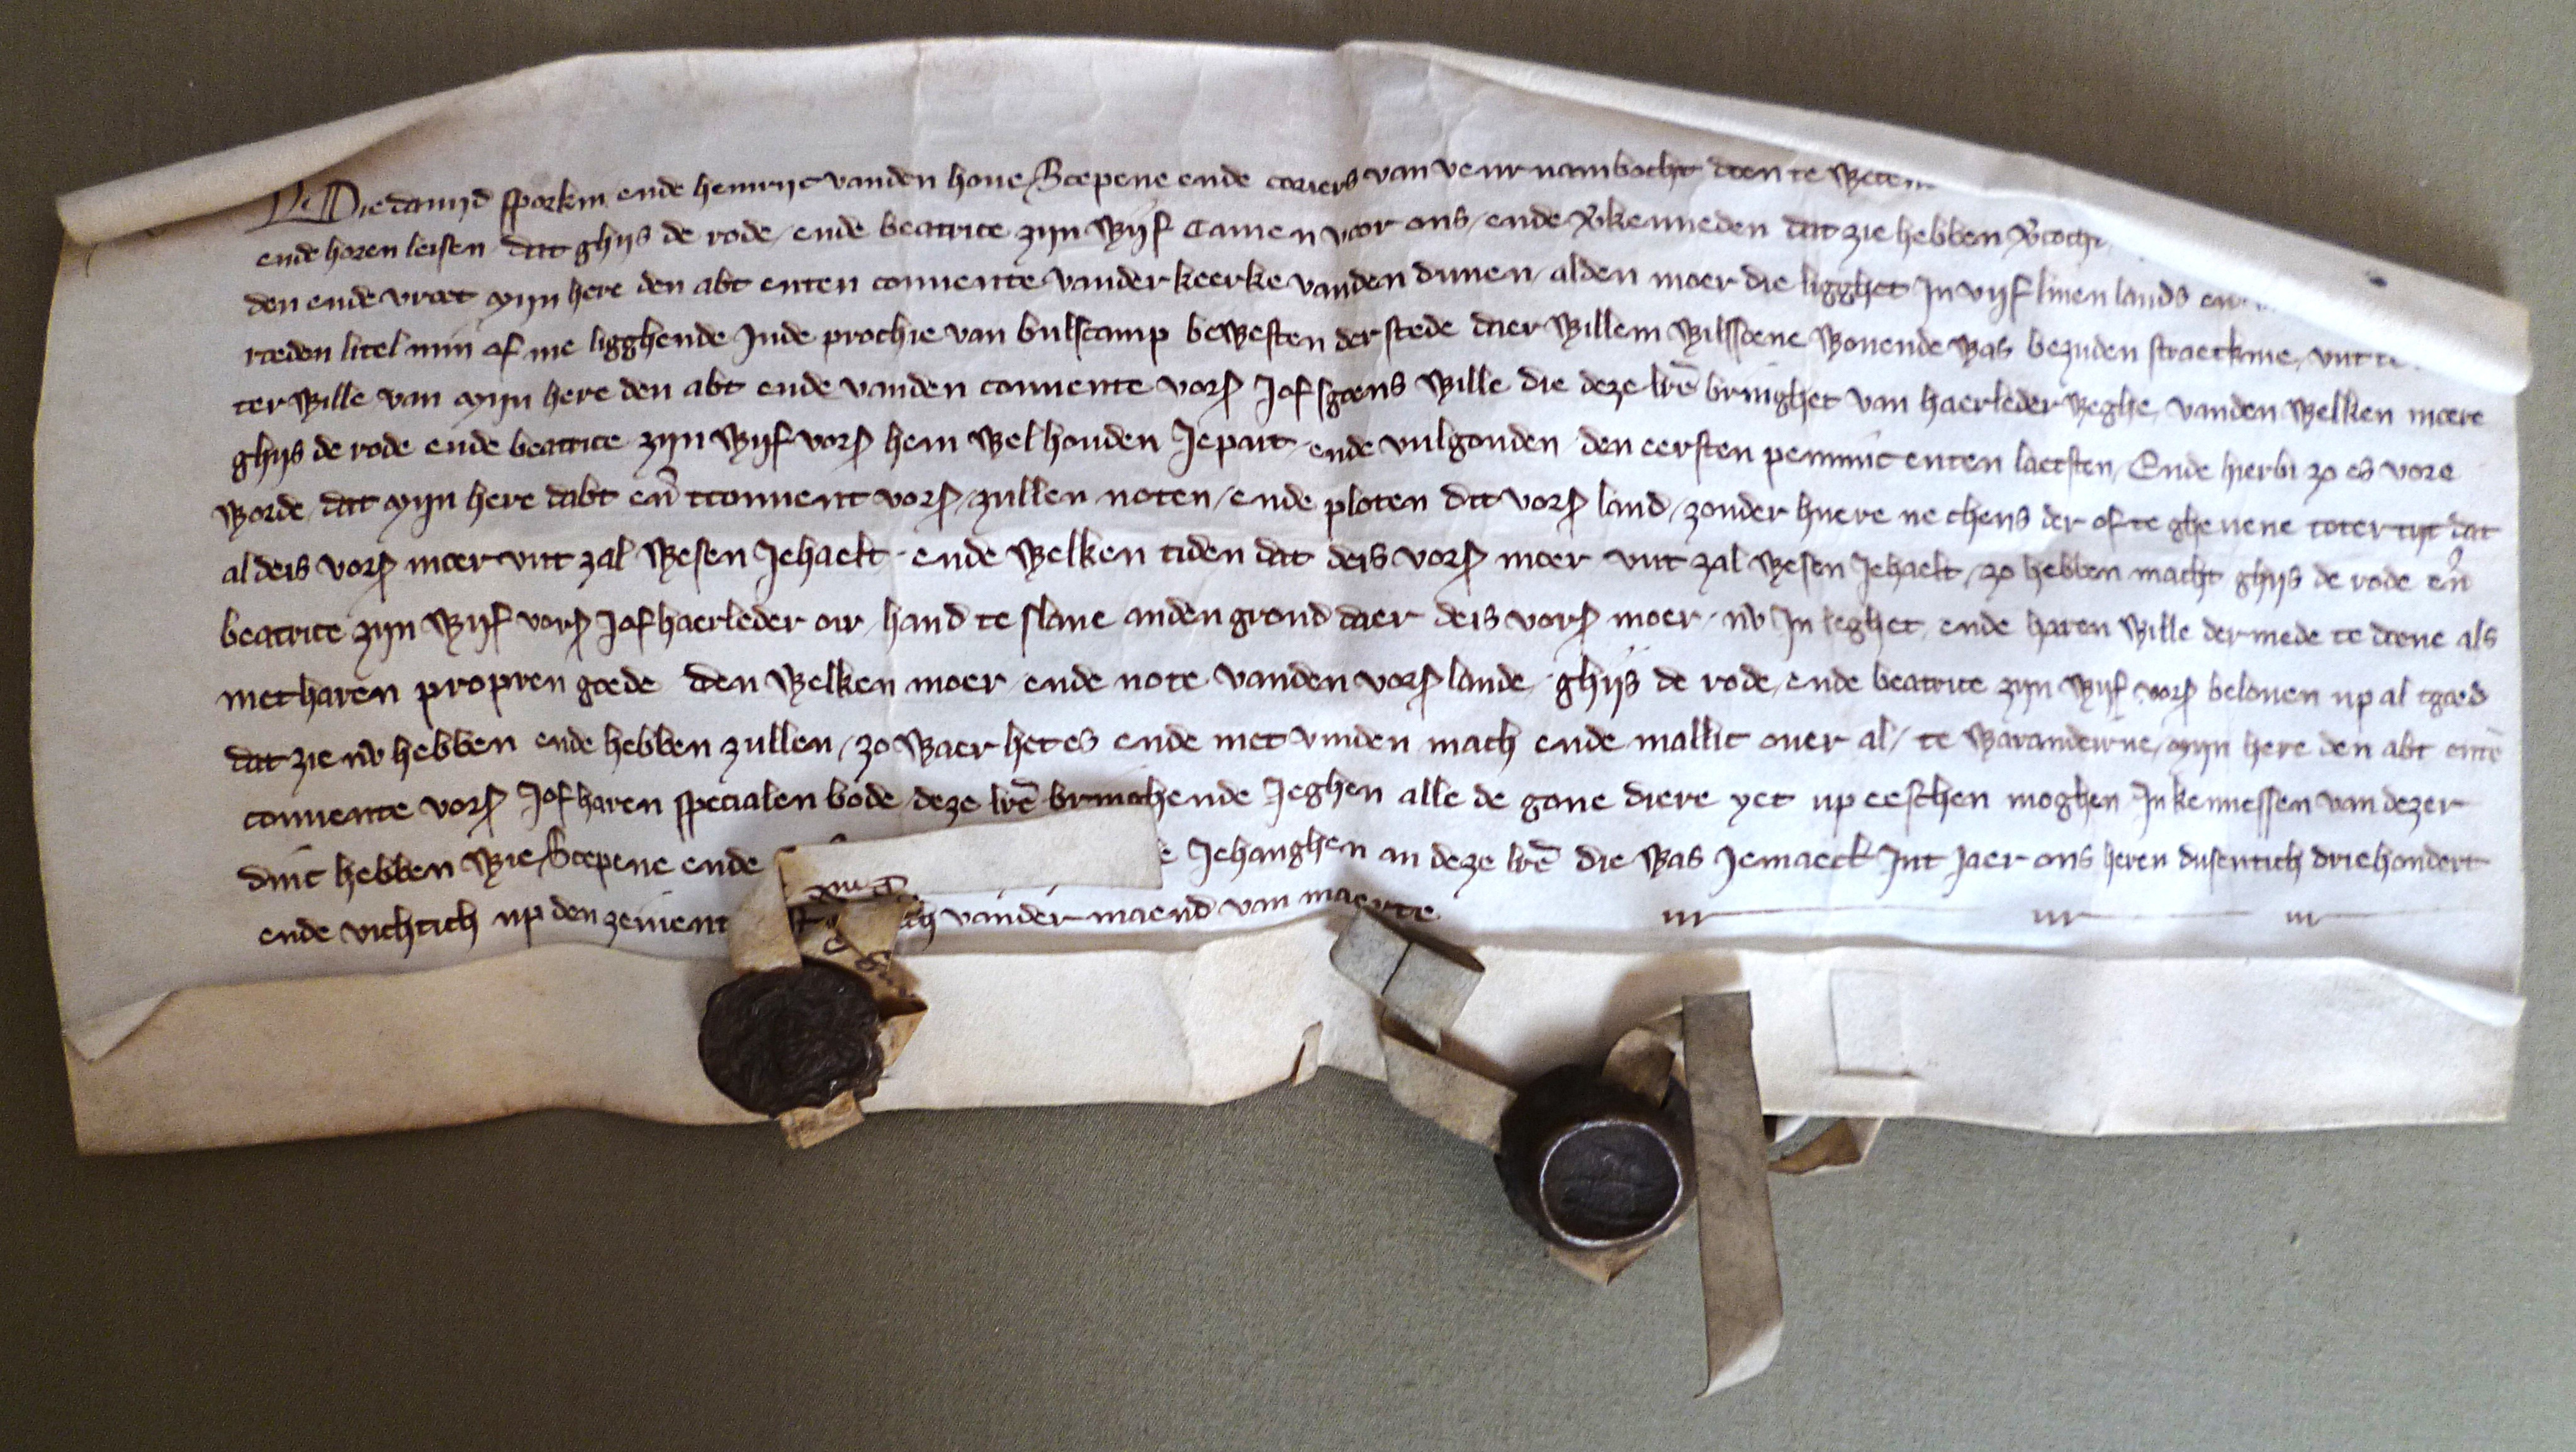 Wie dauijd sporkin ende heinrijc vanden houe Scepene ende coriers van veurnambocht doen te weten
ende horen leisen dat ghijs de rode / ende beatrice zijn wijf Camen voor ons / ende v̾kenneden dat zie hebben v̾coch
den ende vroet mijn here den abt enten conuente vander keerke vanden dunen / al den moer die ligghet In vijf linen lands
roeden litel min of me ligghende Inde prochie van bulscamp bewesten der stede daer willem wilssoene wonende was bezuden straetkine /
ter wille van mijn here den abt ende vanden conuente vors̃ Jof sgoens wille die deze lr̃e bringhet van haerleder weghe / vanden welken moere
ghijs de rode ende beatrice zijn wijf vors̃ hem wel houden Jepait ende vulgouden den eersten pennинc enten laetsten / Ende hierbi zo es vore
worde / dat mijn here dabt en̄ tconuent vors̃ / zullen noten / ende ploten dit vors̃ land / zonder huere ne cheins der of te gheuene toter tijt dat
al deis vors̃ moer vut zal wesen Jehaelt / ende welken tiden dat deis vors̃ moer vut zal wesen Jehaelt / zo hebben macht ghijs de rode en̄
beatrice zijn wijf vors̃ Jof haerleder oir / hand te slane anden grond daer deis vors̃ moer / nv In leghet / ende haren wille dermede te doene als
met haren propren goede den welken moer / ende note vanden vors̃ lande / ghijs de rode / ende beatrice zijn wijf vors̃ belouen up al tgoed
dat zie nv hebben ende hebben zullen / zo waer het es ende met vinden mach ende mallic ouer al / te waranderne / mijn here den abt entē
conuente vors̃ Jof haren specialen bode / deze lr̃e bringhende Jeghen alle de gone diere yet up eeschen moghen In kennessen van dezer
dinc hebben wie Scepene ende Jehanghen an deze lr̃e die was Jemaect Int Jaer ons heren dusentich driehondert
ende vichtich up den zeuent vander maend van maerte